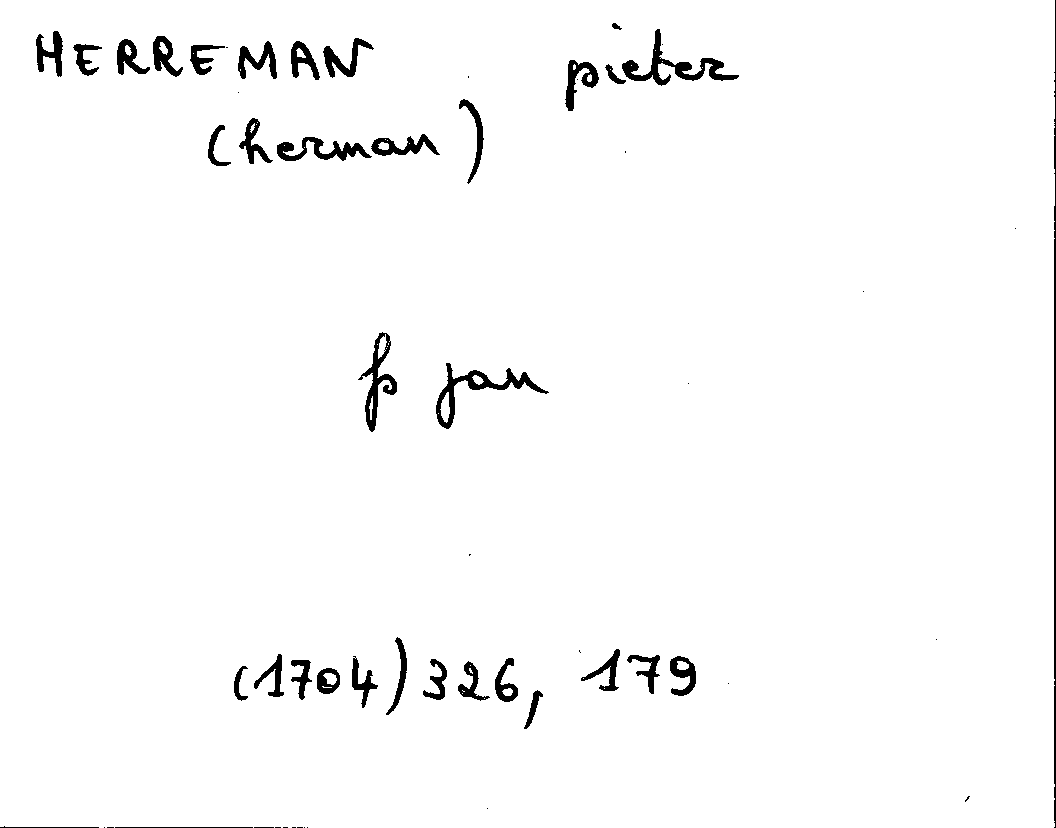 HERREMAN pieter
(herman)
fs jan
(1704) 326, 179